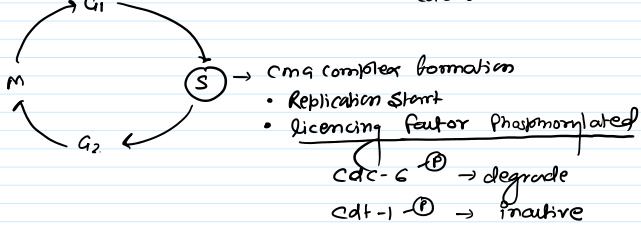 G1
M
S → cmg complex formation
• Replication start
• licencing factor Phosphorylated
G2
cdc-6 -P → degrade
cdt-1 -P → inactive